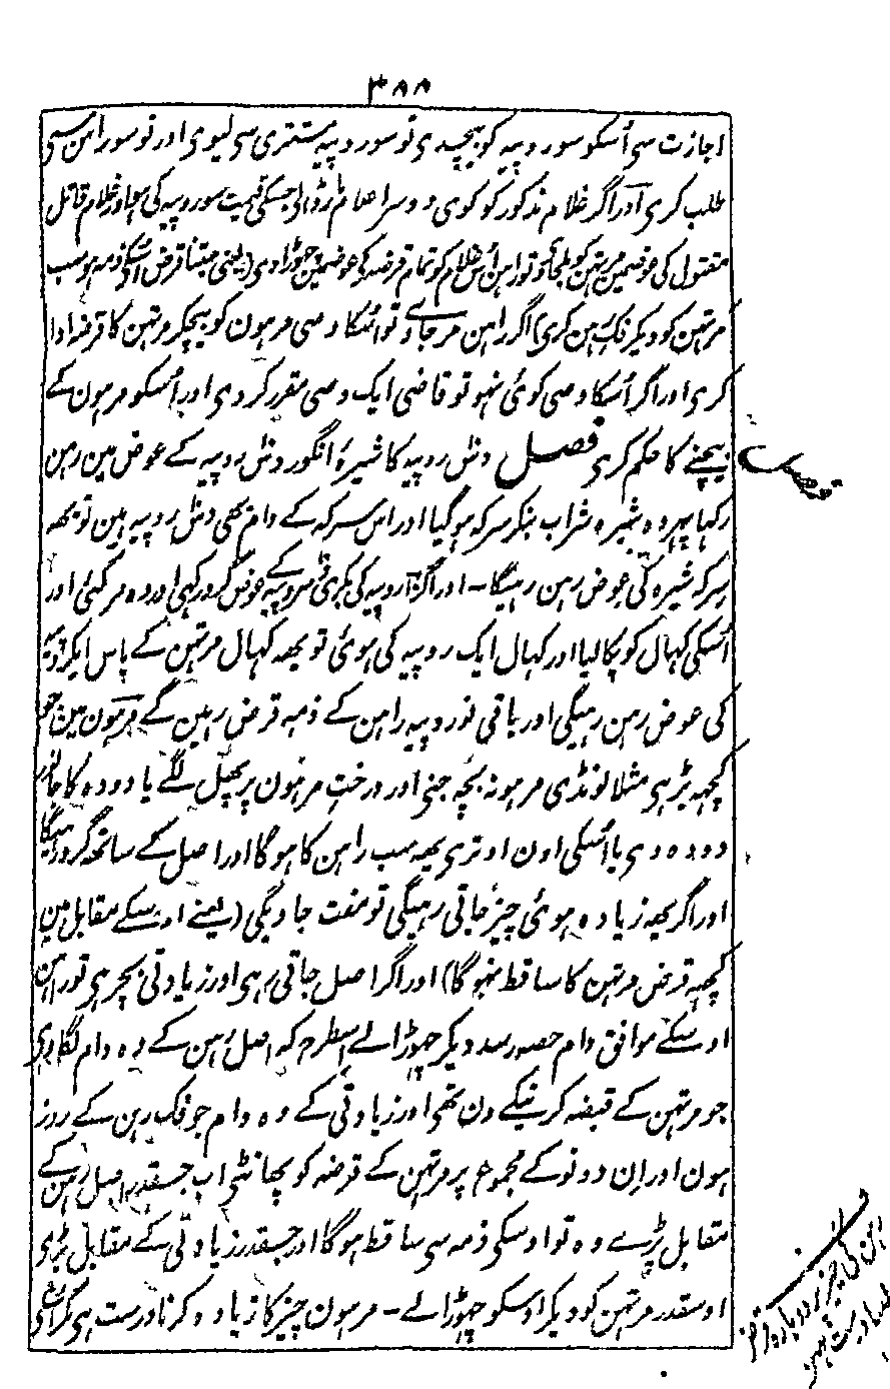 ۳۸۸
اجازت سی اُسکو سو روپیہ کو بیچدی تو سو روپیہ مشتری سی لیوی اور نو سو راہن سی
طلب کری اور اگر غلام مذکور کو کوی دوسرا غلام مار ڈالی جسکی قیمت سو روپیہ کی ہو اور غلام قاتل
مقتول کی عوضمین مرتہن کو ملجاوی تو راہن اُس غلام کو تمام قرضہ کی عوضمین چھوڑاوی (یعنی جتنا قرض اُسکی ذمہ ہو سب
مرتہن کو دیکر فک رہن کری) اگر راہن مرجاے تو اُسکا وصی مرہون کو بیچکر مرتہن کا قرضہ ادا
کری اور اگر اُسکا وصی کوئی نہو تو قاضی ایک وصی مقرر کر دی اور اُسکو مرہون کے
بیچنے کا حکم کری فصل دس روپیہ کا شیرۂ انگور دس روپیہ کے عوض مین رہن
رکہا پہر وہ شیرہ شراب بنکر سرکہ ہوگیا اور اس سرکہ کے دام بھی دس روپیہ ہین تو یہہ
سرکہ شیرہ کی عوض رہن رہیگا - اور اگر دس روپیہ کی بکری دس روپیہ کے عوض گرو رکہی اور وہ مر گئی اور
اُسکی کہال کو پکا لیا اور کہال ایک روپیہ کی ہوئی تو یہہ کہال مرتہن کے پاس ایکروپیہ
کی عوض رہن رہیگی اور باقی نو روپیہ راہن کے ذمہ قرض رہین گے مرہون مین جو
کچہہ بڑہی مثلا لونڈی مرہونہ بچہ جنی اور درخت مرہون پر پھل لگے یا دودہ کا جانور
دودہ دی یا اُسکی اون اوتری یہہ سب راہن کا ہوگا اور اصل کے ساتھ گرو رہیگا
اور اگر یہہ زیادہ ہوئی چیز جاتی رہیگی تو مفت جاویگی (یعنے اوسکے مقابل مین
کچہہ قرض مرتہن کا ساقط نہوگا) اور اگر اصل جاتی رہی اور زیادتی بچ رہی تو راہن
اوسکے موافق دام حصہ رسد دیکر چھوڑالے اسطرح کہ اصل رہن کے وہ دام لگاوی
جو مرتہن کے قبضہ کرنیکے دن تھی اور زیادتی کے وہ دام جو فک رہن کے روز
ہون اور ان دونو کے مجموع پر مرتہن کے قرضہ کو بھانٹی اب جسقدر اصل رہن کے
مقابل پڑے وہ تو اوسکی ذمہ سی ساقط ہوگا اور جسقدر زیادتی کے مقابل پڑی
اوسقدر مرتہن کو دیکر اوسکو چھوڑالے - مرہون چیز کا زیادہ کرنا درست ہی مگر اوسی
رہن کی چیز پر دوبارہ قرض
لینا درست نہین